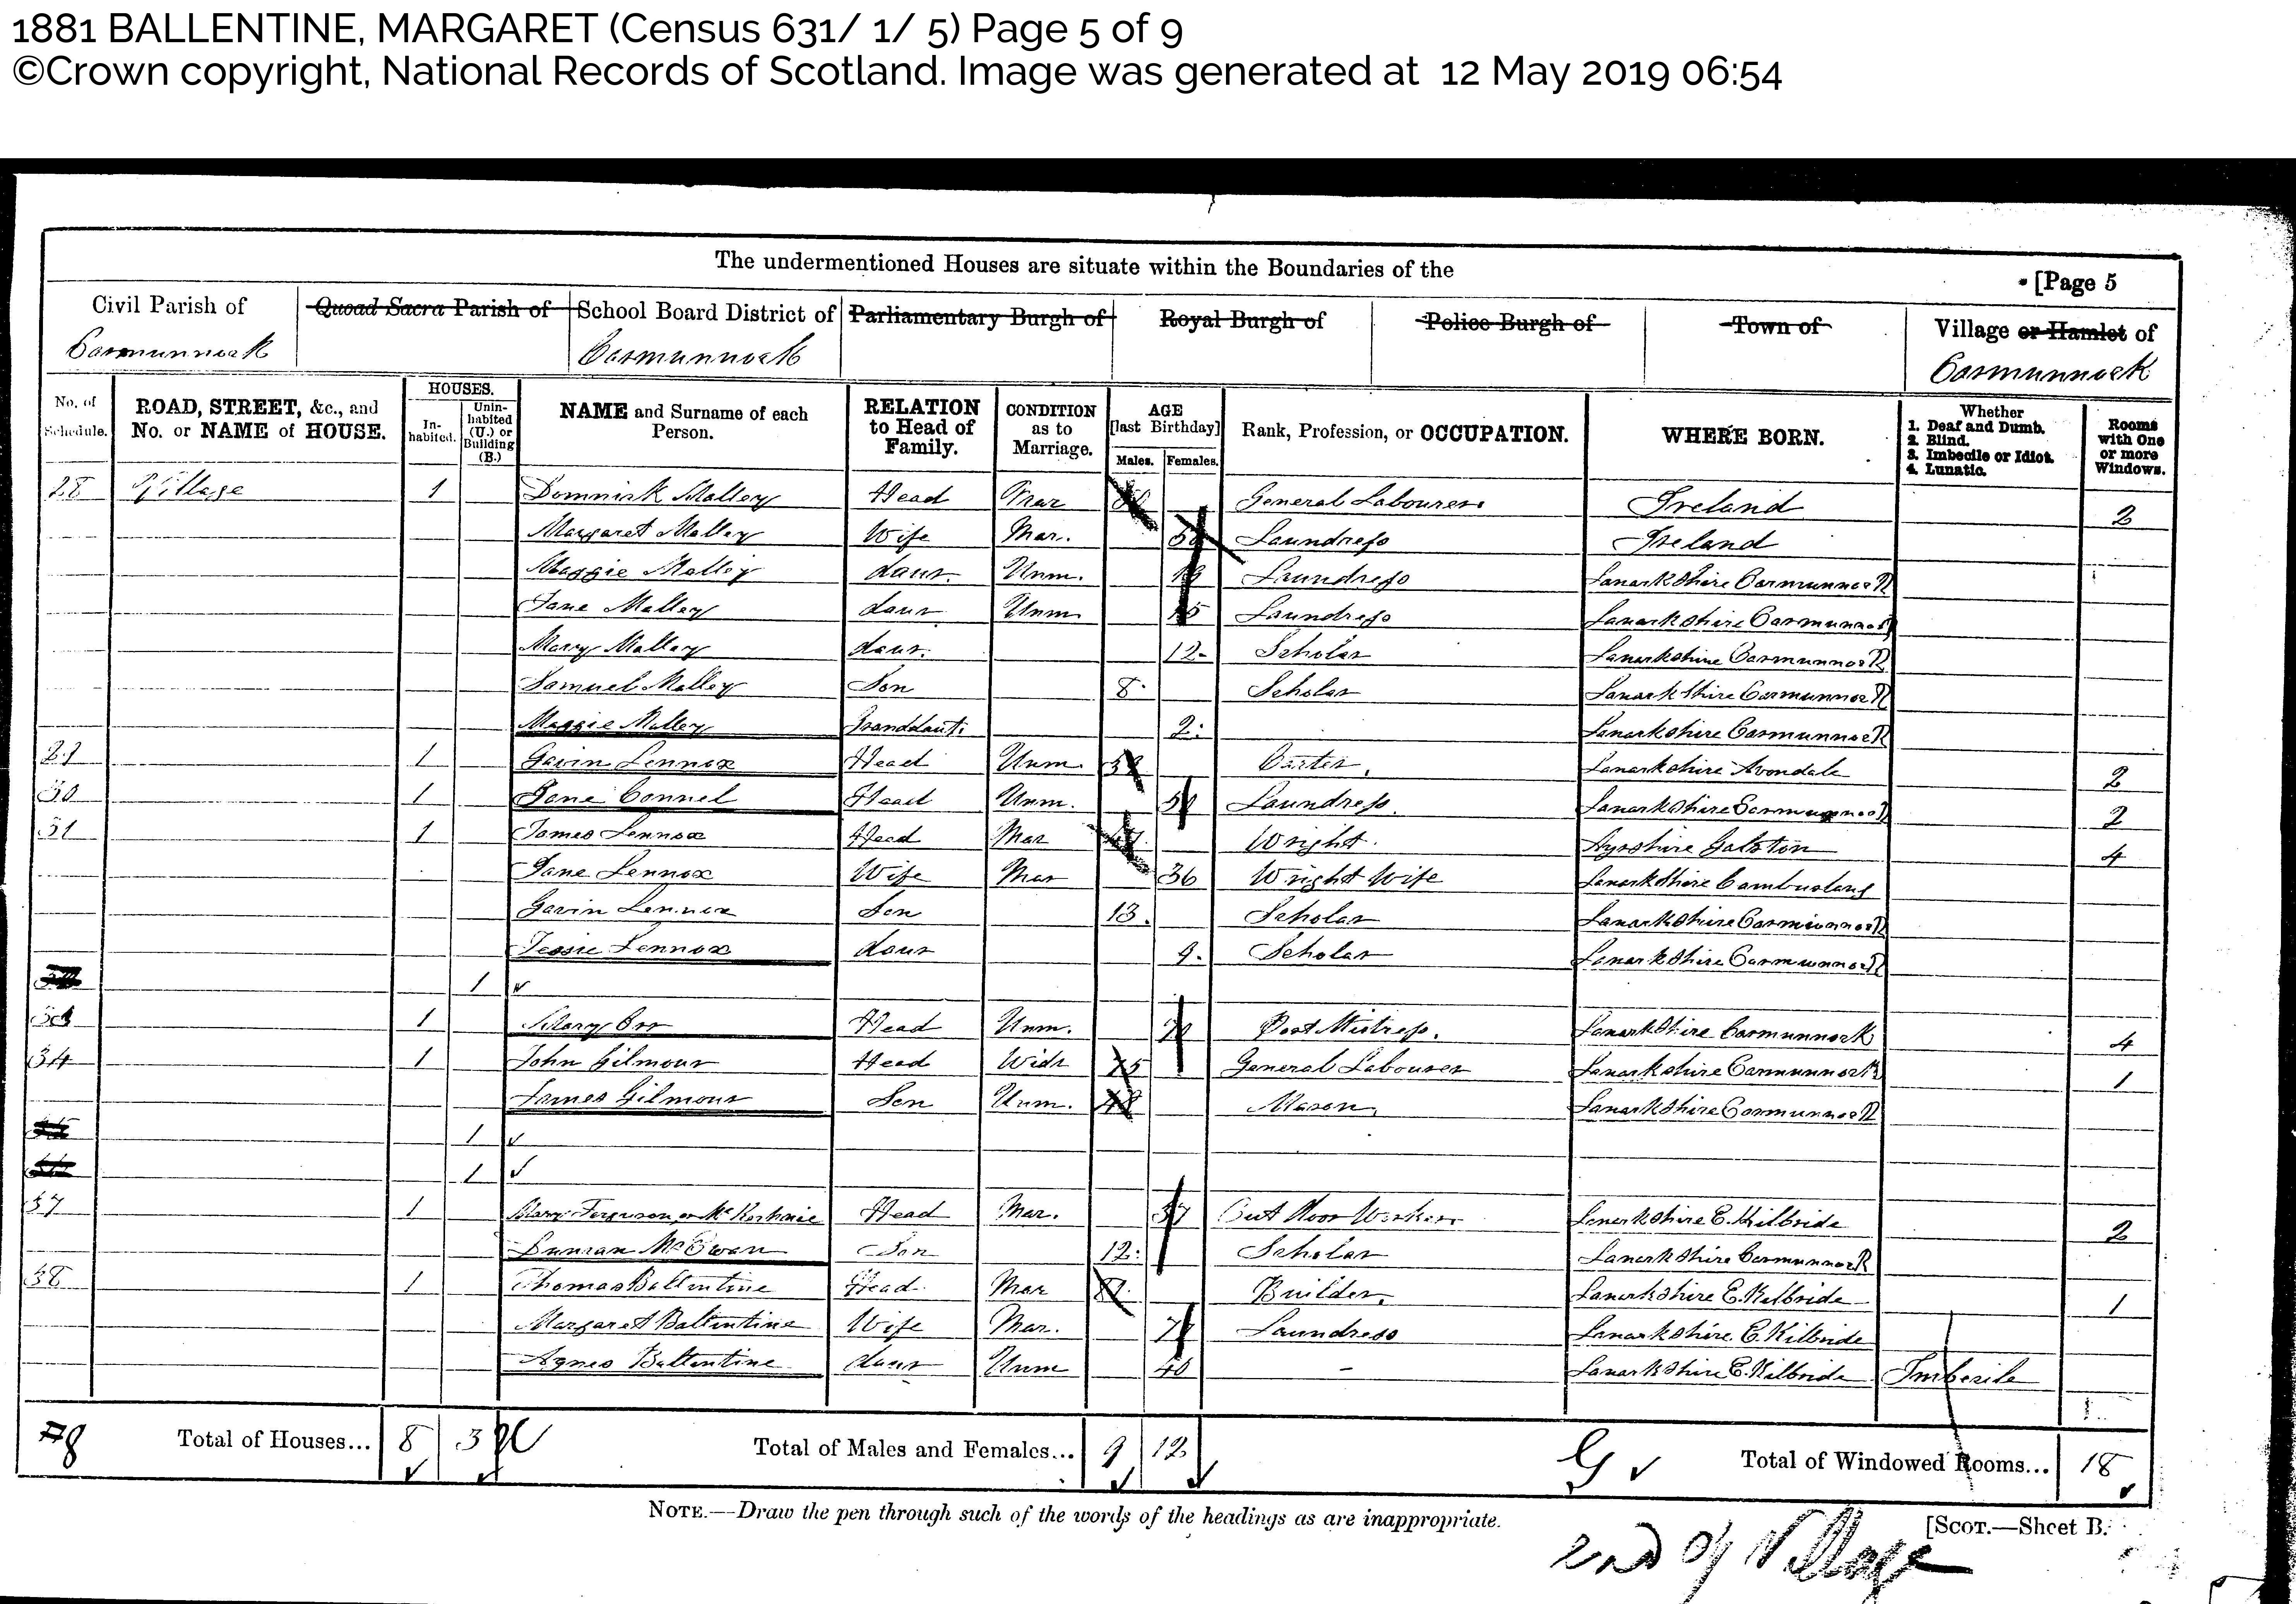 1881 BALLENTINE, MARGARET (Census 631/ 1/ 5) Page 5 of 9
©Crown copyright, National Records of Scotland. Image was generated at 12 May 2019 06:54
The undermentioned Houses are situate within the Boundaries of the
[Page 5
Civil Parish of Quoad Sacra Parish of School Board District of Parliamentary Burgh of Royal Burgh of Police Burgh of Town of Village or Hamlet of
Carmunnock Carmunnock Carmunnock
No. of Schedule. ROAD, STREET, &c., and No. or NAME of HOUSE. HOUSES. Inhabited. Uninhabited (U.) or Building (B.) NAME and Surname of each Person. RELATION to Head of Family. CONDITION as to Marriage. AGE [last Birthday] Males. Females. Rank, Profession, or OCCUPATION. WHERE BORN. Whether 1. Deaf and Dumb. 2. Blind. 3. Imbecile or Idiot. 4. Lunatic. Rooms with One or more Windows.
28 Village 1 Dominick Malley Head Mar General Labourer Ireland 2
Margaret Malley Wife Mar. Laundress Ireland
Maggie Malley daur. Unm. Laundress Lanarkshire Carmunnock
Jane Malley daur Unm 15 Laundress Lanarkshire Carmunnock
Mary Malley daur. 12 Scholar Lanarkshire Carmunnock
Samuel Malley Son 8 Scholar Lanarkshire Carmunnock
Maggie Malley Granddaut. 2 Lanarkshire Carmunnock
29 1 Gavin Lennox Head Unm. Carter. Lanarkshire Avondale 2
30 1 Jane Connel Head Unm. Laundress. Lanarkshire Carmunnock 2
31 1 James Lennox Head Mar Wright. Ayrshire Galston 4
Jane Lennox Wife Mar 36 Wright Wife Lanarkshire Cambuslang
Gavin Lennox Son 13. Scholar Lanarkshire Carmunnock
Jessie Lennox daur 9. Scholar Lanarkshire Carmunnock
1
1 Mary Orr Head Unm. Post Mistress. Lanarkshire Carmunnock 4
34 1 John Gilmour Head Widr 75 General Labourer Lanarkshire Carmunnock 1
James Gilmour Son Unm. Mason. Lanarkshire Carmunnock
1
1
37 1 Mary Ferguson or Head Mar. 37 Out Door Worker Lanarkshire E. Kilbride 2
Duncan McEwan Son 12. Scholar Lanarkshire Carmunnock
38 1 Thomas Ballentine Head Mar Builder. Lanarkshire E. Kilbride 1
Margaret Ballentine Wife Mar. Laundress Lanarkshire E. Kilbride
Agnes Ballentine daur Unm 40 - Lanarkshire E. Kilbride Imbecile
8 Total of Houses... 8 3 Total of Males and Females... 9 12 Total of Windowed Rooms... 18
NOTE.—Draw the pen through such of the words of the headings as are inappropriate.
[SCOT.—Sheet B.
End of Village